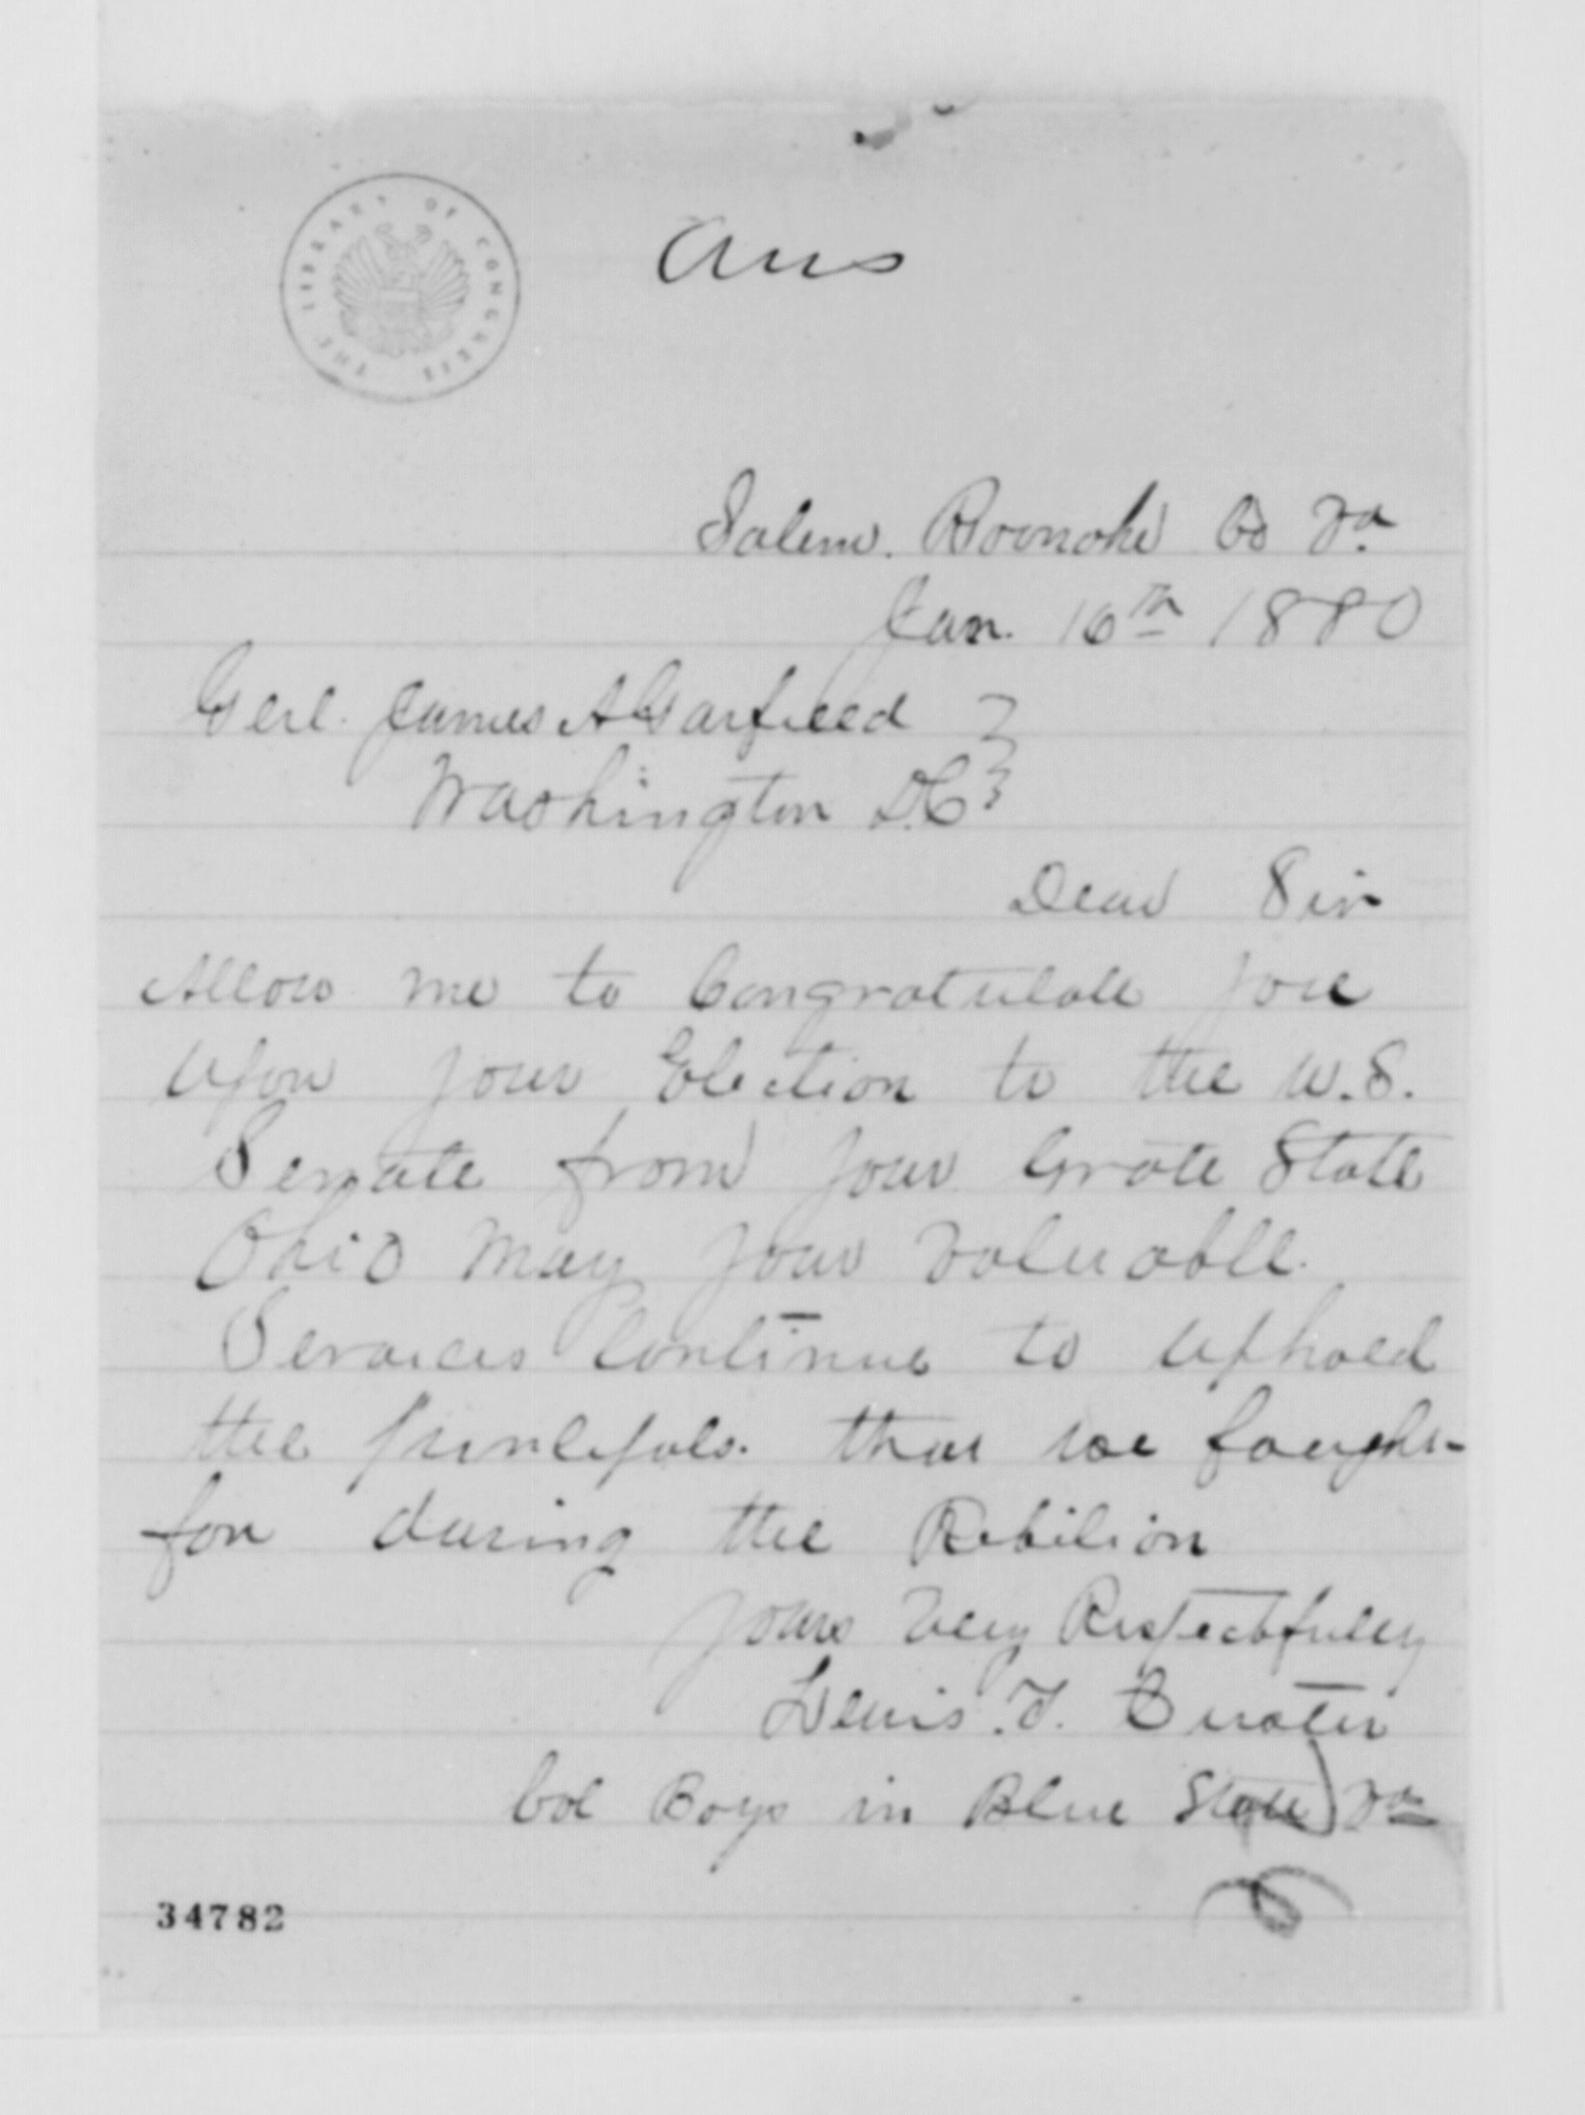 THE LIBRARY OF CONGRESS
Ans
Salem. Roonoke Co Va
Jan. 16th 1880
Genl. James A Garfield
Washington D.C
Dear Sir
Allow me to Congratulate you
upon your Election to the U.S.
Senate from your Grate State
Ohio May your valuable.
Services Continue to uphold
the principals. that we fought
for during the Rebilion
yours very Respectfully
Lewis. F.
Col Boys in Blue State Va
34782